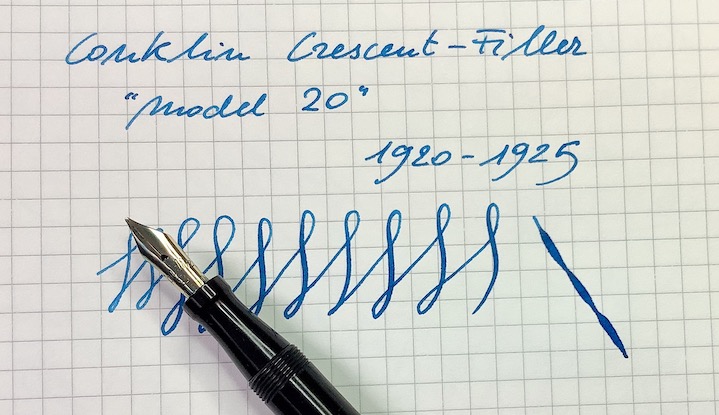 Conklin Crescent-Filler
"Model 20"
1920-1925